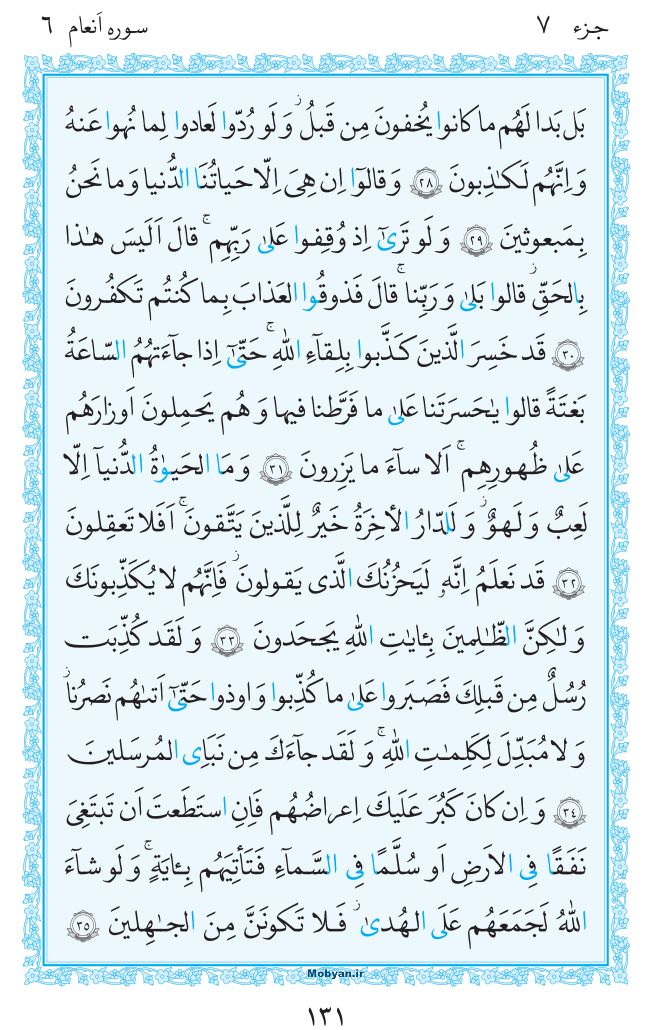 جزء ٧ سوره اَنعام ٦
بَل بَدا لَهُم ما كانوا يُخفونَ مِن قَبلُ ۖ وَ لَو رُدّوا لَعادوا لِما نُهوا عَنهُ
وَ اِنَّهُم لَكٰذِبونَ ﴿٢٨﴾ وَ قالوٓا اِن هِىَ اِلّا حَياتُنَا الدُّنيا وَ ما نَحنُ
بِمَبعوثينَ ﴿٢٩﴾ وَ لَو تَرىٰٓ اِذ وُقِفوا عَلىٰ رَبِّهِم ۚ قالَ اَلَيسَ هٰذا
بِالحَقِّ ۖ قالوا بَلىٰ وَ رَبِّنا ۚ قالَ فَذوقُوا العَذابَ بِما كُنتُم تَكفُرونَ
﴿٣٠﴾ قَد خَسِرَ الَّذينَ كَذَّبوا بِلِقآءِ اللهِ ۚ حَتّىٰٓ اِذا جآءَتهُمُ السّاعَةُ
بَغتَةً قالوا يٰحَسرَتَنا عَلىٰ ما فَرَّطنا فيها وَ هُم يَحمِلونَ اَوزارَهُم
عَلىٰ ظُهورِهِم ۚ اَلا سآءَ ما يَزِرونَ ﴿٣١﴾ وَ مَا الحَيوٰةُ الدُّنيآ اِلّا
لَعِبٌ وَ لَهوٌ ۖ وَ لَلدّارُ الأخِرَةُ خَيرٌ لِلَّذينَ يَتَّقونَ ۚ اَفَلا تَعقِلونَ
﴿٣٢﴾ قَد نَعلَمُ اِنَّهُۥ لَيَحزُنُكَ الَّذى يَقولونَ ۖ فَاِنَّهُم لا يُكَذِّبونَكَ
وَ لٰكِنَّ الظّٰلِمينَ بِـٔايٰتِ اللهِ يَجحَدونَ ﴿٣٣﴾ وَ لَقَد كُذِّبَت
رُسُلٌ مِن قَبلِكَ فَصَبَروا عَلىٰ ما كُذِّبوا وَ اوذوا حَتّىٰٓ اَتىٰهُم نَصرُنا ۖ
وَ لا مُبَدِّلَ لِكَلِمٰتِ اللهِ ۚ وَ لَقَد جآءَكَ مِن نَبَاِى المُرسَلينَ
﴿٣٤﴾ وَ اِن كانَ كَبُرَ عَلَيكَ اِعراضُهُم فَاِنِ استَطَعتَ اَن تَبتَغِىَ
نَفَقًا فِى الاَرضِ اَو سُلَّمًا فِى السَّمآءِ فَتَأتِيَهُم بِـٔايَةٍ ۚ وَ لَو شآءَ
اللهُ لَجَمَعَهُم عَلَى الهُدىٰ ۖ فَلا تَكونَنَّ مِنَ الجٰهِلينَ ﴿٣٥﴾
Mobyan.ir
١٣١